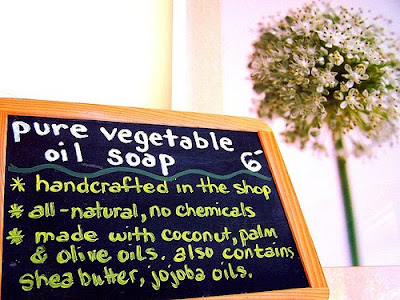 pure vegetable
oil soap 6-
* handcrafted in the shop
* all-natural, no chemicals
* made with coconut, palm
& olive oils. also contains
shea butter, jojoba oils.